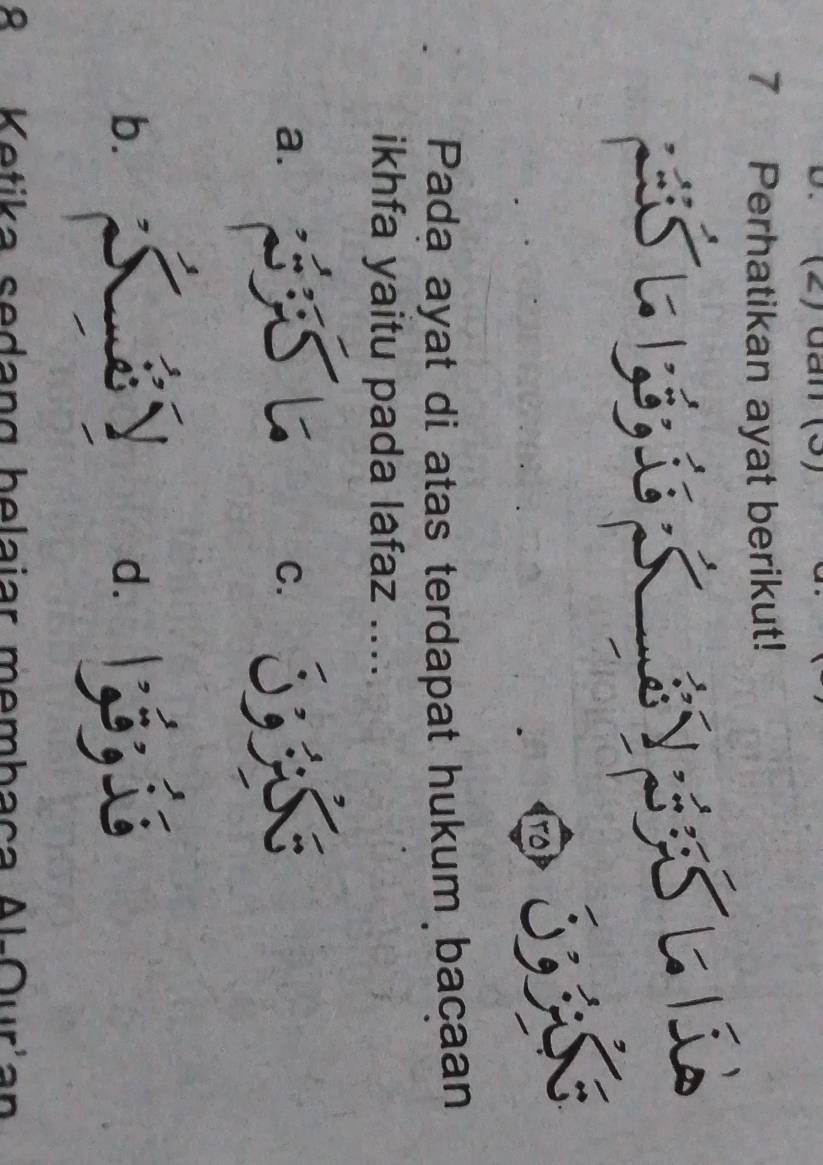 b. (2) dan (3) d.
7 Perhatikan ayat berikut!
هٰذَا مَا كَنَزْتُمْ لِاَنْفُسِكُمْ فَذُوْقُوْا مَا كُنْتُمْ
تَكْنِزُوْنَ ٣٥
Pada ayat di atas terdapat hukum bacaan
ikhfa yaitu pada lafaz ....
a. مَا كَنَزْتُمْ c. تَكْنِزُوْنَ
b. لِاَنْفُسِكُمْ d. فَذُوْقُوْا
8 Ketika sedang belajar membaca Al-Qur'an